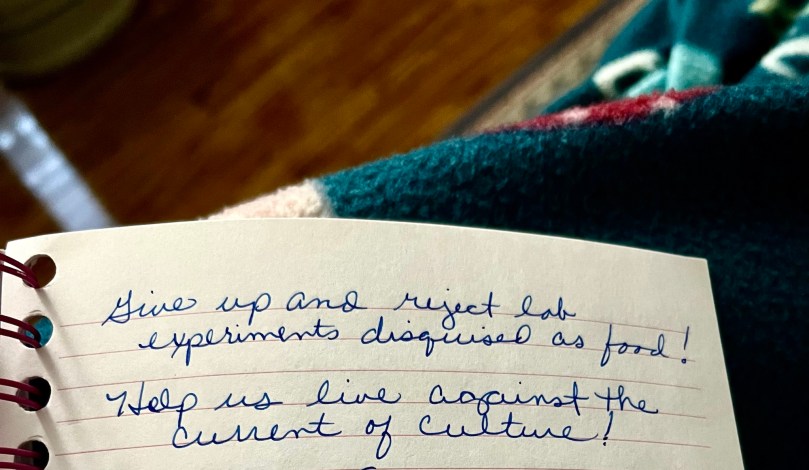 Give up and reject lab
experiments disguised as food!
Help us live against the
current of culture!